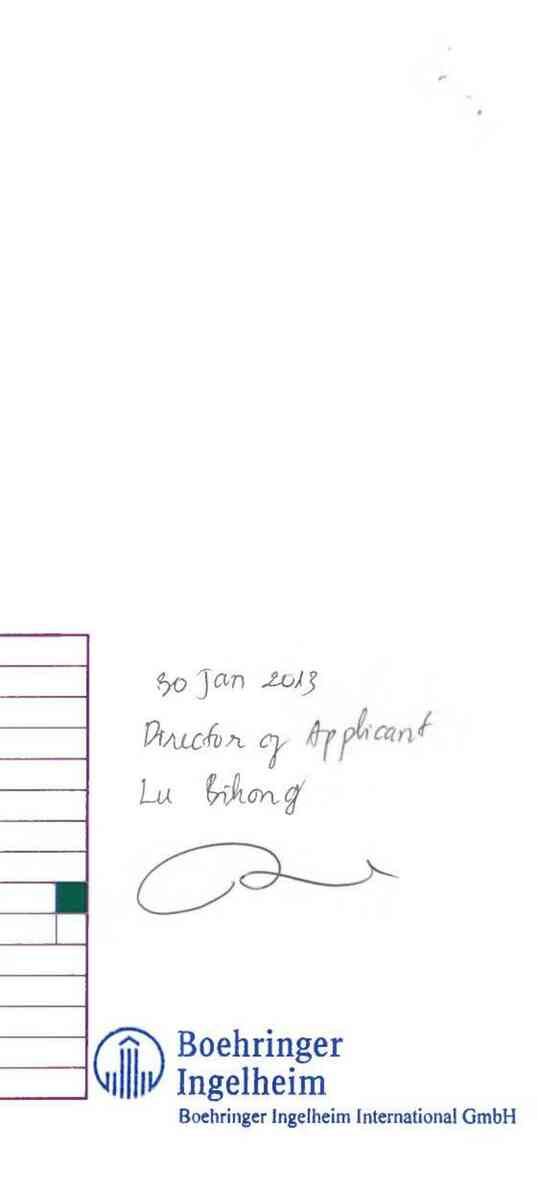 30 Jan 2013
Director of Applicant
Lu Bihong
Boehringer
Ingelheim
Boehringer Ingelheim International GmbH